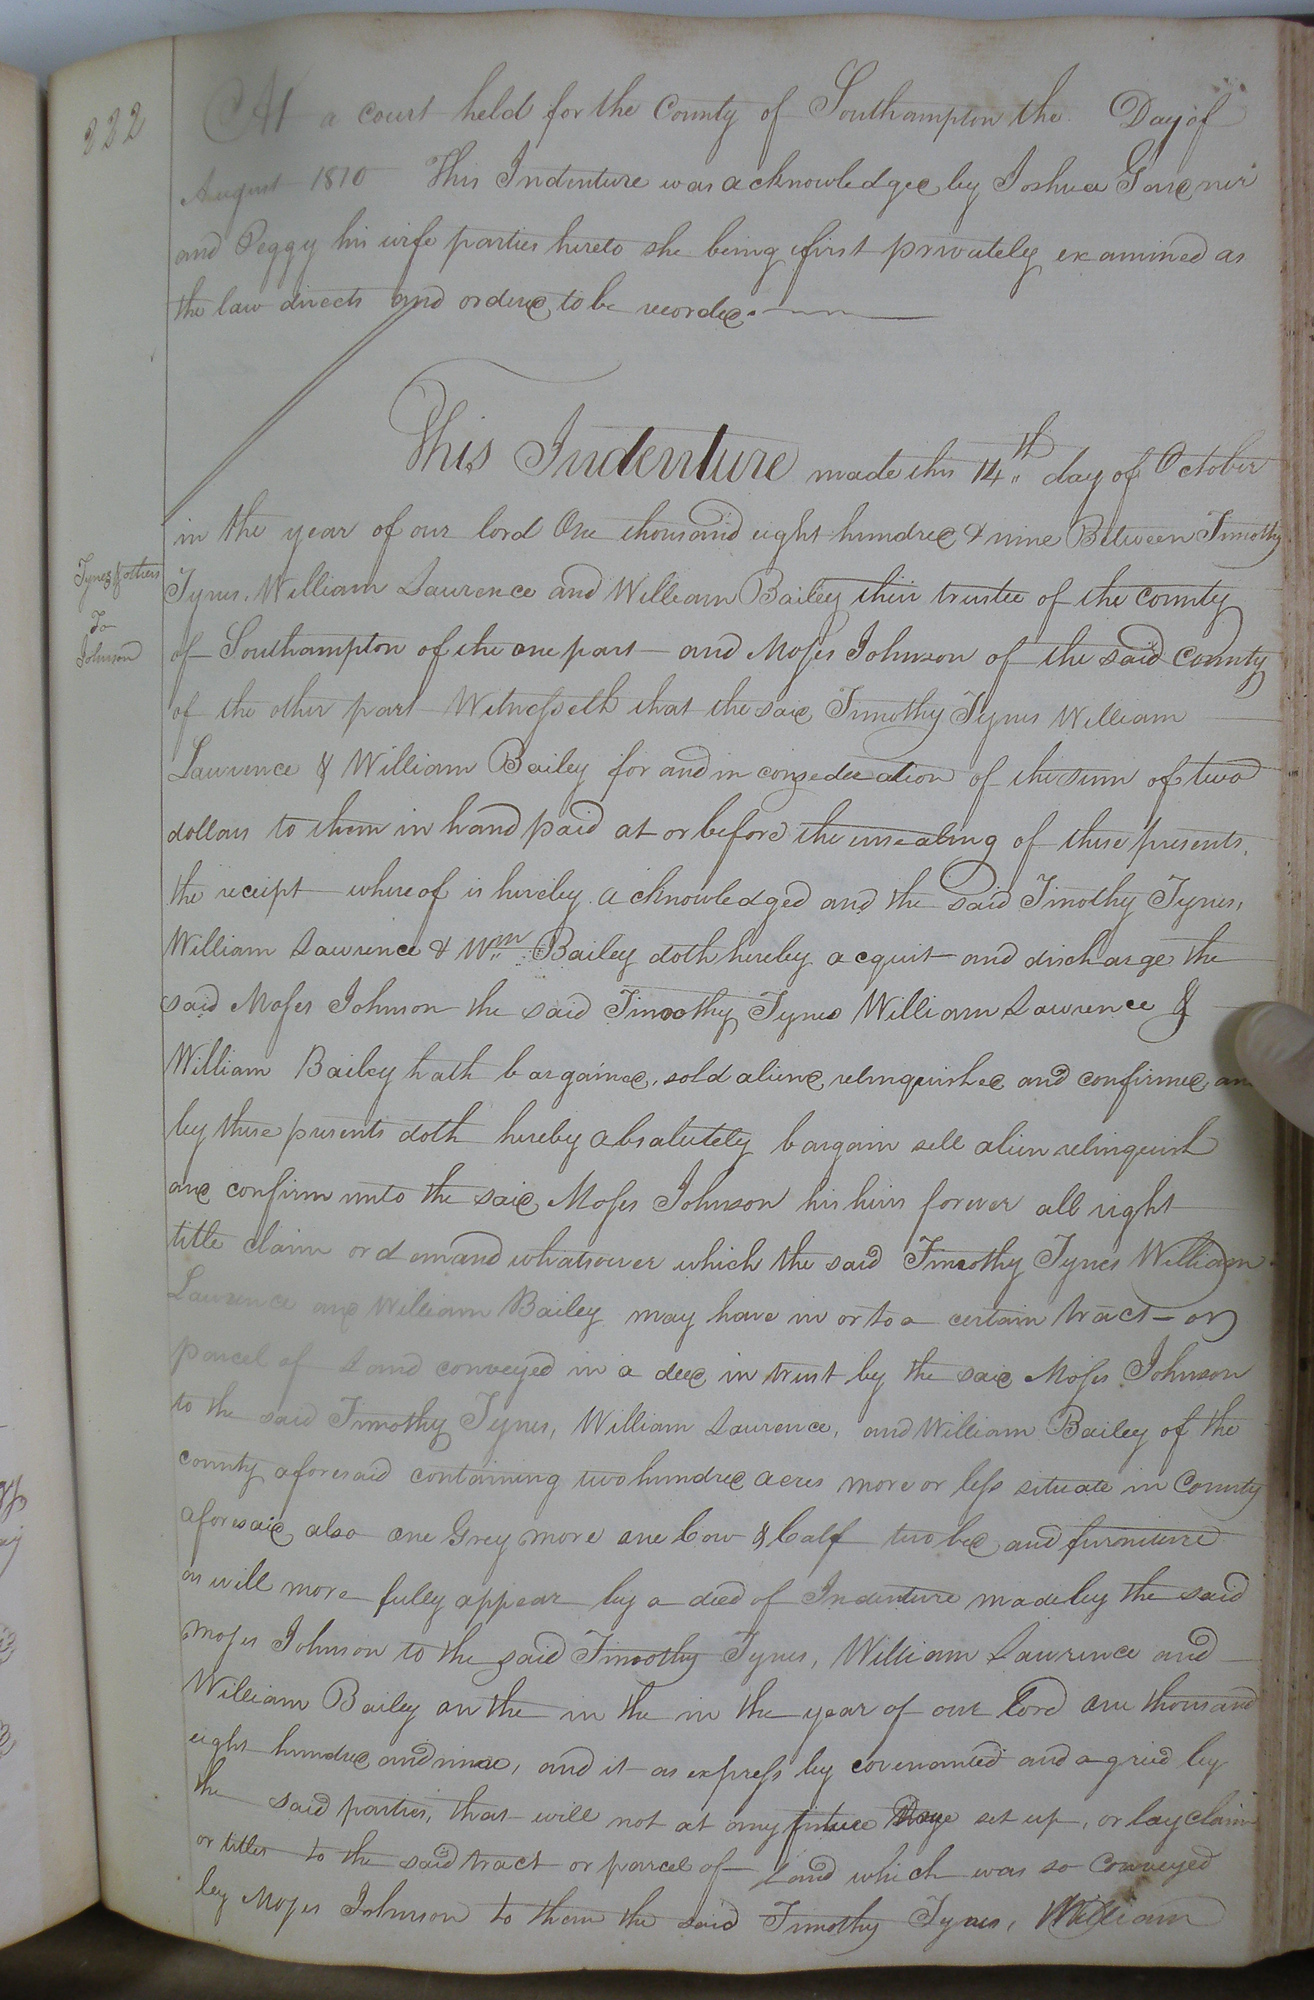 222
At a court held for the County of Southampton the Day of
August 1810 This Indenture was acknowledged by Joshua Gardner
and Peggy his wife parties hereto she being first privately examined as
the law directs and ordered to be recorded.
This Indenture made this 14th day of October
in the year of our lord One thousand eight hundred & nine Between Timothy
Tynes & others
To
Johnson
Tynes, William Lawrence and William Bailey their trustee of the County
of Southampton of the one part and Moses Johnson of the said County
of the other part Witnesseth that the said Timothy Tynes William
Lawrence & William Bailey for and in consederation of the sum of two
dollars to them in hand paid at or before the ensealing of these presents,
the receipt whereof is hereby acknowledged and the said Timothy Tynes,
William Lawrence & Wm Bailey doth hereby acquit and discharge the
said Moses Johnson the said Timothy Tynes William Lawrence &
William Bailey hath bargained, sold aliend, relinquished and confirmed, and
by these presents doth hereby absalutely bargain sell alien relinquish
and confirm unto the said Moses Johnson his heirs forever all right
title claim or demand whatsoever which the said Timothy Tynes William
Lawrence and William Bailey may have in or to a certain tract or
parcel of Land conveyed in a deed in trust by the said Moses Johnson
to the said Timothy Tynes, William Lawrence, and William Bailey of the
county aforesaid containing two hundred acres more or less situate in County
aforesaid, also one Grey more one Cow & Calf two bed and furoniture
as will more fully appear by a deed of Indenture made by the said
Moses Johnson to the said Timothy Tynes, William Lawrence and
William Bailey on the in the in the year of our Lord one thousand
eight hundred and nine, and it as express by covenanted and agried by
the said parties, that will not at any future Daye set up, or lay claim
or titles to the said tract or parcel of Land which was so Conveyed
by Moses Johnson to them the said Timothy Tynes, William